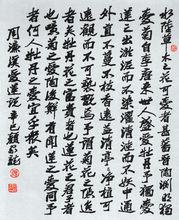 水陸草木之花可愛者甚蕃晉陶淵明獨
愛菊自李唐來世人盛愛牡丹予獨愛
蓮之出淤泥而不染濯清漣而不妖中通
外直不蔓不枝香遠益清亭亭淨植可
遠觀而不可褻玩焉予謂菊花之隱逸
者也牡丹花之富貴者也蓮花之君子者
也噫菊之愛陶後鮮有聞蓮之愛同予
者何人牡丹之愛宜乎眾矣
周濂溪愛蓮說辛巳